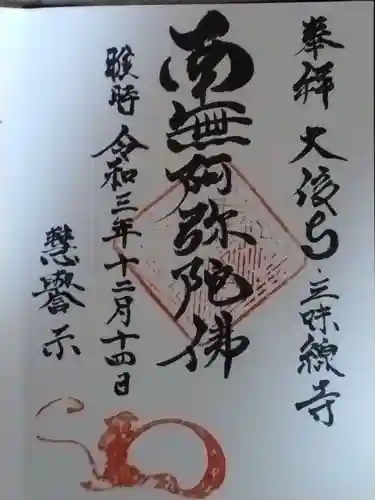 奉拝 大後ら 三味線寺
南無阿弥陀佛
睺時 令和三年十二月十四日
慧譽示